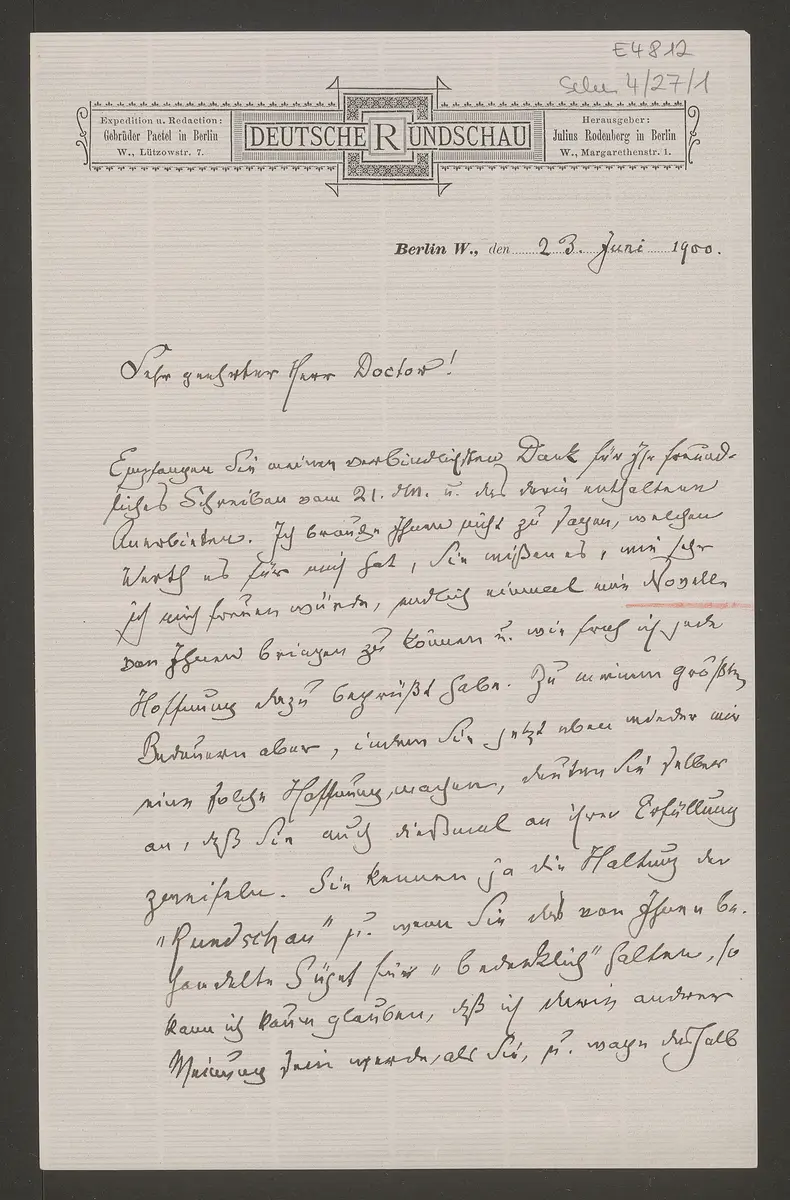 E4812
4/27/1
Expedition u. Redaction:
Gebrüder Paetel in Berlin
W., Lützowstr. 7.
DEUTSCHE RUNDSCHAU
Herausgeber:
Julius Rodenberg in Berlin
W., Margarethenstr. 1.
Berlin W., den 23. Juni 1900.
Sehr geehrter Herr Doctor!
Empfangen Sie meinen verbindlichsten Dank für Ihr freund-
liches Schreiben vom 21. dM. u. das darin enthaltene
Anerbieten. Ich brauche Ihnen nicht zu sagen, welchen
Werth es für mich hat, Sie wißen es, wie sehr
ich mich freuen würde, endlich einmal eine Novelle
von Ihnen bringen zu können u. wie froh ich jede
Hoffnung dazu begrüßt habe. Zu meinem größten
Bedauern aber, indem Sie jetzt eben wieder mir
eine solche Hoffnung machen, deuten Sie selber
an, daß Sie auch dießmal an ihrer Erfüllung
zweifeln. Sie kennen ja die Haltung der
„Rundschau“ u. wenn Sie das von Ihnen be-
handelte Süjet für „bedenklich“ halten, so
kann ich kaum glauben, daß ich darin anderer
Meinung sein werde, als Sie, u. wage deshalb